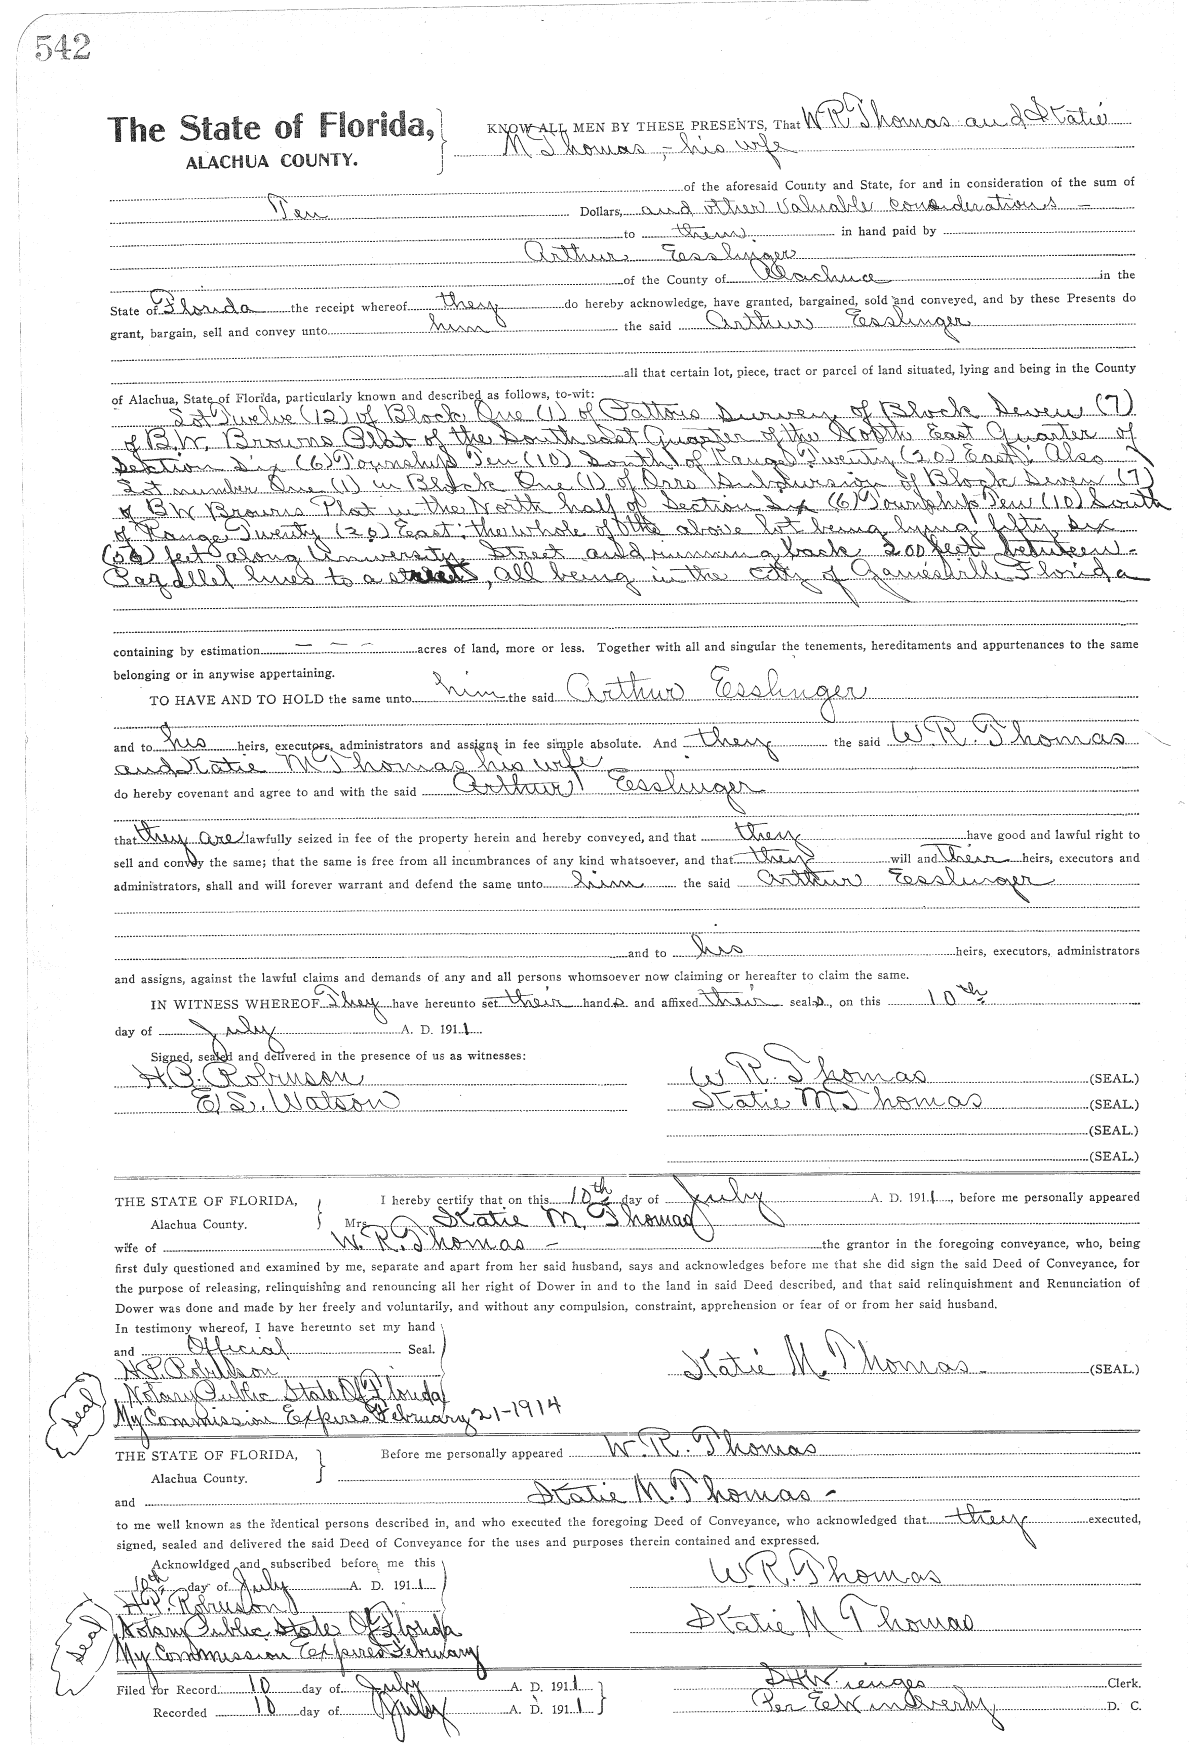 542
The State of Florida, KNOW ALL MEN BY THESE PRESENTS, That W R Thomas and Katie
ALACHUA COUNTY. M Thomas, - his wife
of the aforesaid County and State, for and in consideration of the sum of
Ten Dollars, and other valuable considerations -
to them in hand paid by
Arthur Esslinger
of the County of Alachua in the
State of Florida the receipt whereof they do hereby acknowledge, have granted, bargained, sold and conveyed, and by these Presents do
grant, bargain, sell and convey unto him the said Arthur Esslinger
all that certain lot, piece, tract or parcel of land situated, lying and being in the County
of Alachua, State of Florida, particularly known and described as follows, to-wit:
Lot Twelve (12) of Block One (1) of Pattons Survey of Block Seven (7)
of B.W. Browns Plat of the South east Quarter of the North East Quarter of
Section Six (6) Township Ten (10) South of Range Twenty (20) East: Also
Lot number One (1) in Block One (1) of Orrs Subdivision of Block Seven (7)
of BW Browns Plat in the North half of Section Six (6) Township Ten (10) South
of Range Twenty (20) East: the whole of the above lot being lying fifty six
(56) feet along University Street and running back 200 feet between
Parallel lines to a street, all being in the City of Gainesville Florida
containing by estimation — — — acres of land, more or less. Together with all and singular the tenements, hereditaments and appurtenances to the same
belonging or in anywise appertaining.
TO HAVE AND TO HOLD the same unto him the said Arthur Esslinger
and to his heirs, executors, administrators and assigns in fee simple absolute. And they the said W.R. Thomas
and Katie M Thomas his wife
do hereby covenant and agree to and with the said Arthur Esslinger
that they are lawfully seized in fee of the property herein and hereby conveyed, and that they have good and lawful right to
sell and convey the same; that the same is free from all incumbrances of any kind whatsoever, and that they will and their heirs, executors and
administrators, shall and will forever warrant and defend the same unto him the said Arthur Esslinger
and to his heirs, executors, administrators
and assigns, against the lawful claims and demands of any and all persons whomsoever now claiming or hereafter to claim the same.
IN WITNESS WHEREOF They have hereunto set their hands and affixed their seals, on this 10th
day of July A. D. 1911
Signed, sealed and delivered in the presence of us as witnesses:
H.P. Robinson W R. Thomas (SEAL.)
E.S. Watson Katie M Thomas (SEAL.)
(SEAL.)
(SEAL.)
THE STATE OF FLORIDA, I hereby certify that on this 10th day of July A. D. 1911, before me personally appeared
Alachua County. Mrs Katie M. Thomas
wife of W.R. Thomas - the grantor in the foregoing conveyance, who, being
first duly questioned and examined by me, separate and apart from her said husband, says and acknowledges before me that she did sign the said Deed of Conveyance, for
the purpose of releasing, relinquishing and renouncing all her right of Dower in and to the land in said Deed described, and that said relinquishment and Renunciation of
Dower was done and made by her freely and voluntarily, and without any compulsion, constraint, apprehension or fear of or from her said husband.
In testimony whereof, I have hereunto set my hand
and Official Seal.
H.P. Robinson Katie M. Thomas - (SEAL)
Notary Public State Of Florida
Seal My Commission Expires February 21-1914
THE STATE OF FLORIDA, Before me personally appeared W.R. Thomas
Alachua County.
and Katie M. Thomas -
to me well known as the identical persons described in, and who executed the foregoing Deed of Conveyance, who acknowledged that they executed,
signed, sealed and delivered the said Deed of Conveyance for the uses and purposes therein contained and expressed.
Acknowldged and subscribed before me this W.R. Thomas
10th day of July A. D. 1911
H.P. Robinson Katie M Thomas
Seal Notary Public State Of Florida
My Commission Expires February
Filed for Record 10 day of July A. D. 1911 S H Wienges Clerk.
Recorded 10 day of July A. D. 1911 Per D. C.